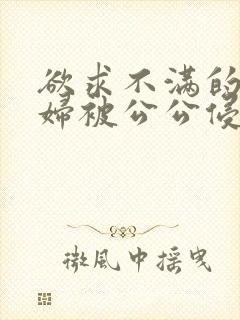 欲求不满的
婦被公公侵
微風中摇曳